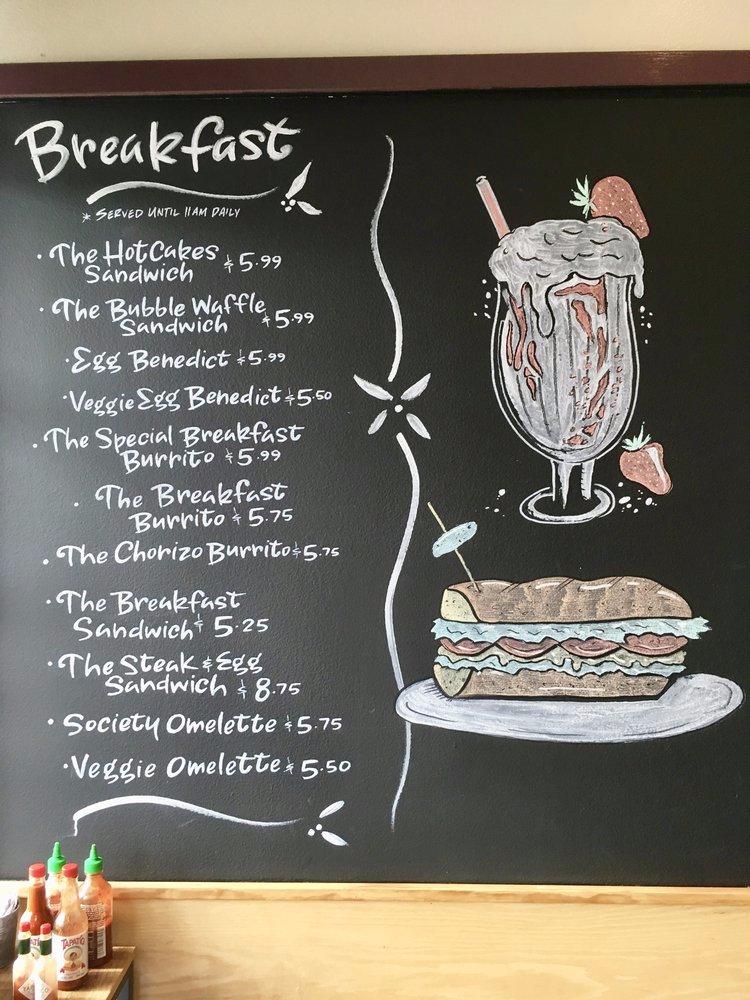 Breakfast
* SERVED UNTIL 11AM DAILY
· The HotCakes
Sandwich $5.99
· The Bubble Waffle
Sandwich $5.99
· Egg Benedict $5.99
· Veggie Egg Benedict $5.50
· The Special Breakfast
Burrito $5.99
· The Breakfast
Burrito $5.75
· The Chorizo Burrito $5.75
· The Breakfast
Sandwich $5.25
· The Steak & Egg
Sandwich $8.75
· Society Omelette $5.75
· Veggie Omelette $5.50
TAPATIO